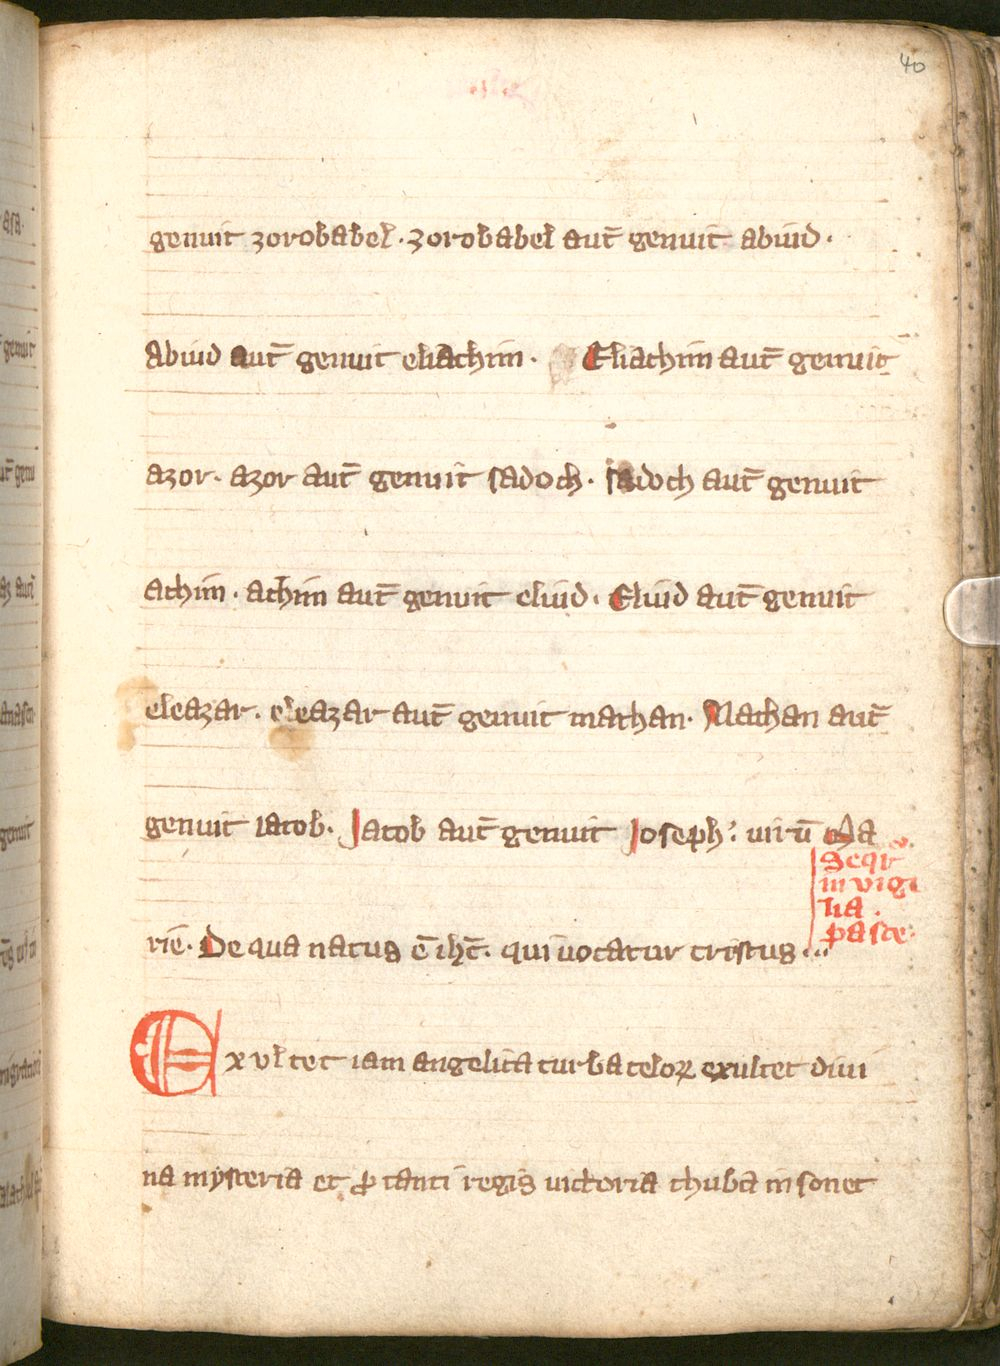 40
genuit zorobabel · zorobabel aut̄ genuit abiud ·
abiud aut̄ genuit eliachim · Eliachim aut̄ genuit
azor · azor aut̄ genuit sadoch · sadoch aut̄ genuit
achim · achim aut̄ genuit eliud · Eliud aut̄ genuit
eleazar · eleazar aut̄ genuit mathan · Mathan aut̄
genuit iacob · Jacob aut̄ genuit Joseph : uirū Ma
Seqr̄
in vigi
lia ·
pasce
rie · De qua natus ē ihc̄ · qui uocatur cristus ·
Exvltet iam angelica turba celoꝝ exultet diui
na mysteria et ꝓ tanti regis uictoria thuba insonet